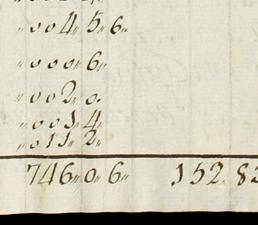 „ 0 0 4„ 5„ 6„
„ 0 0 0„ 6„
„ 0 0 2„ 0„
„ 0 0 1„ 4„
„ 0 1 1„ 2„
746„ 0„ 6„ 152. 8